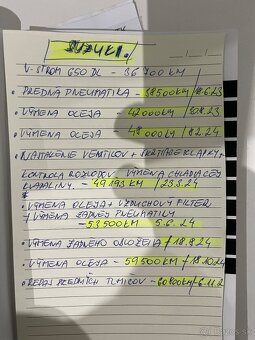 SUZUKI.
V-STROM 650 DL - 36 700 KM
• PREDNÁ PNEUMATIKA - 38500KM/
• VÝMENA OLEJA - 42000KM/
• VÝMENA OLEJA - 48 000KM/18.2.24
VENTILOV +
KONTROLA ROZVODOV VÝMENA CHLADIACEJ
KVAPALINY - 49 193 KM /23.3.24
• VÝMENA OLEJA + VZDUCHOVÝ FILTER
+ VÝMENA ZADNEJ PNEUMATIKY
- 53500 KM 5.6.24
• VÝMENA ZADNÉHO OBLOŽENIA /18.8.24
• VÝMENA OLEJA - 59500KM/18.10.24
• REPAS PREDNÝCH TLMIČOV -